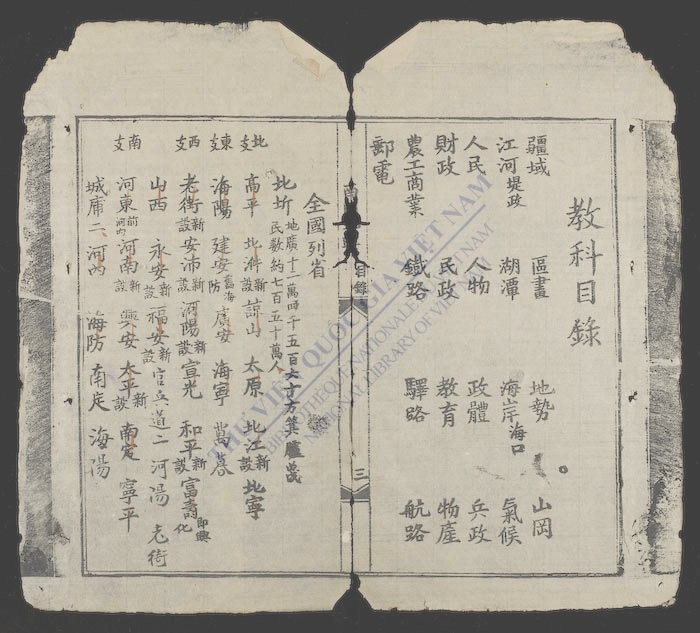 教科目錄
疆域 區畫 地勢 山岡
江河堤政 湖潭 海岸海口 氣候
人民 人物 政體 兵政
財政 民政 教育 物產
農工商業 鐵路 驛路 航路
郵電
目錄 三
全國列省
北圻 地廣十二萬四千五百六十方箕臚 民數約七百五十萬人
北支 高平 北新設 諒山 太原 北江新設 北寧
東支 海陽 建安舊海防 廣安 海寧 萬
西支 老街新設 安沛新設 河陽新設 宣光 和平新設 富壽即興化
山西 永安新設 福安新設 官兵道二 河陽 老街
南支 河東前河內 河南新設 興安 太平新設 南定 寧平
城庸二 河內 海防 南定 海陽
THƯ VIỆN QUỐC GIA VIỆT NAM
BIBLIOTHÈQUE NATIONALE DU VIETNAM
NATIONAL LIBRARY OF VIETNAM